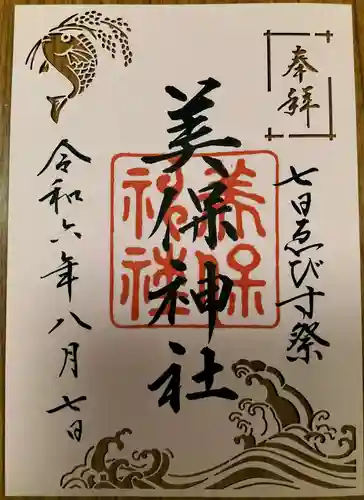 奉拝
七日ゑびす祭
美保神社
美保
神社
令和六年八月七日